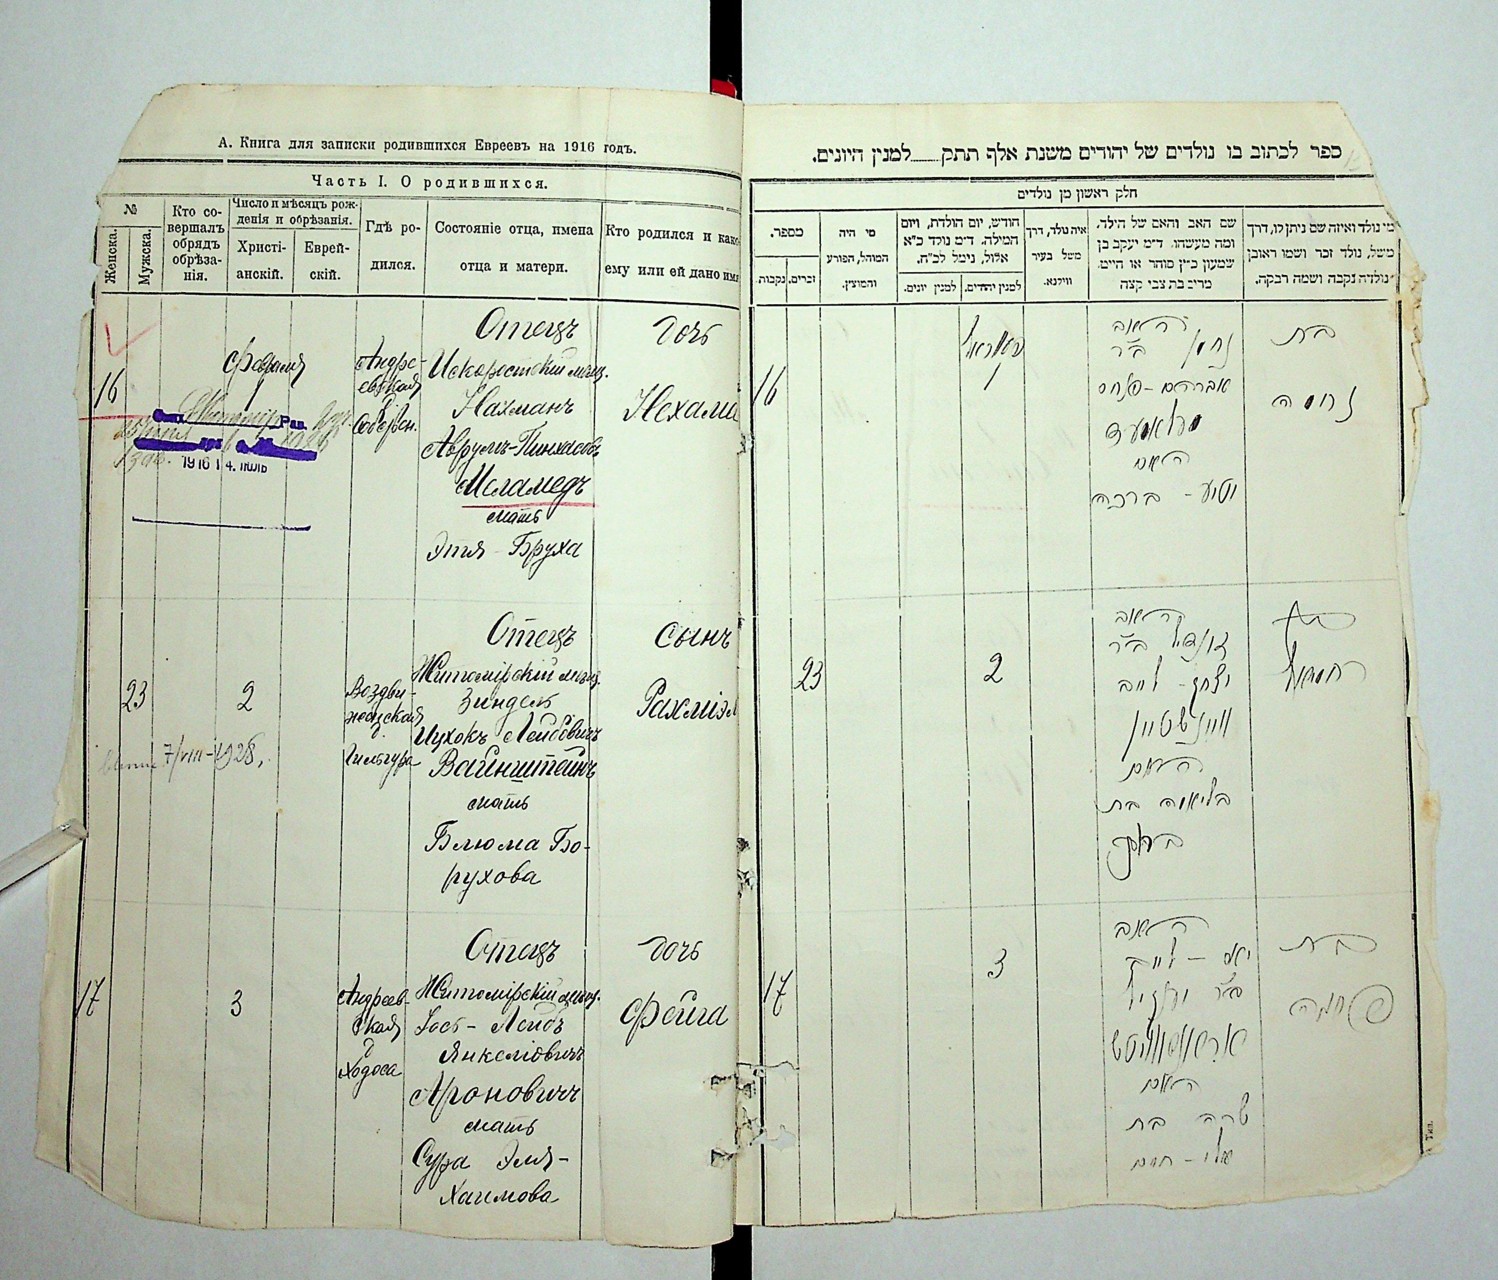 А. Книга для записки родившихся Евреевъ на 1916 годъ.
Часть I. О родившихся.
№
Женска.
Мужска.
Кто со-
вершалъ
обрядъ
обрѣза-
нія.
Число и мѣсяцъ рож-
денія и обрѣзанія.
Христі-
анскій.
Еврей-
скій.
Гдѣ ро-
дился.
Состояніе отца, имена
отца и матери.
Кто родился и како
ему или ей дано имя
16
Февраля
1
Андре-
евская
Отецъ
Искоростскій мѣщ.
Нахманъ
Аврумъ-Пинхасовъ
Меламедъ
мать
Этя-Бруха
дочь
Нехама
Рав.
1916 14. июль
23
2
Воздви-
женская
Отецъ
Житомірскій мѣщ.
Зиндель
Ицхокъ Лейбовичъ
Вайнштейнъ
мать
Блюма Бо-
рухова
сынъ
Рахміэл
7/VIII-1928.
17
3
Андреев-
ская
д
Ходоса
Отецъ
Житомірскій мѣщ.
Лейбъ
Янкеліовичъ
Ароновичъ
мать
Сура Эля-
Хаимова
дочь
Фейга
ספר לכתוב בו נולדים של יהודים משנת אלף תתק למנין היונים.
חלק ראשון מן נולדים
מספר.
זכרים.
נקבות.
מי היה
המוהל, הפורע
והמוצץ.
חודש, יום הולדת, ויום
המילה. ד״מ נולד כ״א
אלול, נימל לכ״ח.
למנין יהודים.
למנין יונים.
איה נולד, דרך
משל בעיר
ווילנא.
שם האב והאם של הילד.
ומה מעשהו. ד״מ יעקב בן
שמעון כ״ץ סוחר או חייט.
מרים בת צבי קצה
מי נולד ואיזה שם ניתן לו, דרך
משל, נולד זכר ושמו ראובן
נולדה נקבה ושמה רבקה.
16
1
האב
נחמן ב״ר
אברהם-פנחס
מלאמעד
האם
יטע-ברכה
בת
נחמה
23
2
האב
ב״ר
יצחק-לייב
וויינשטיין
האם
בלומה בת
ברוך
17
3
האב
האם
שרה בת
בת
פייגה
Тип.